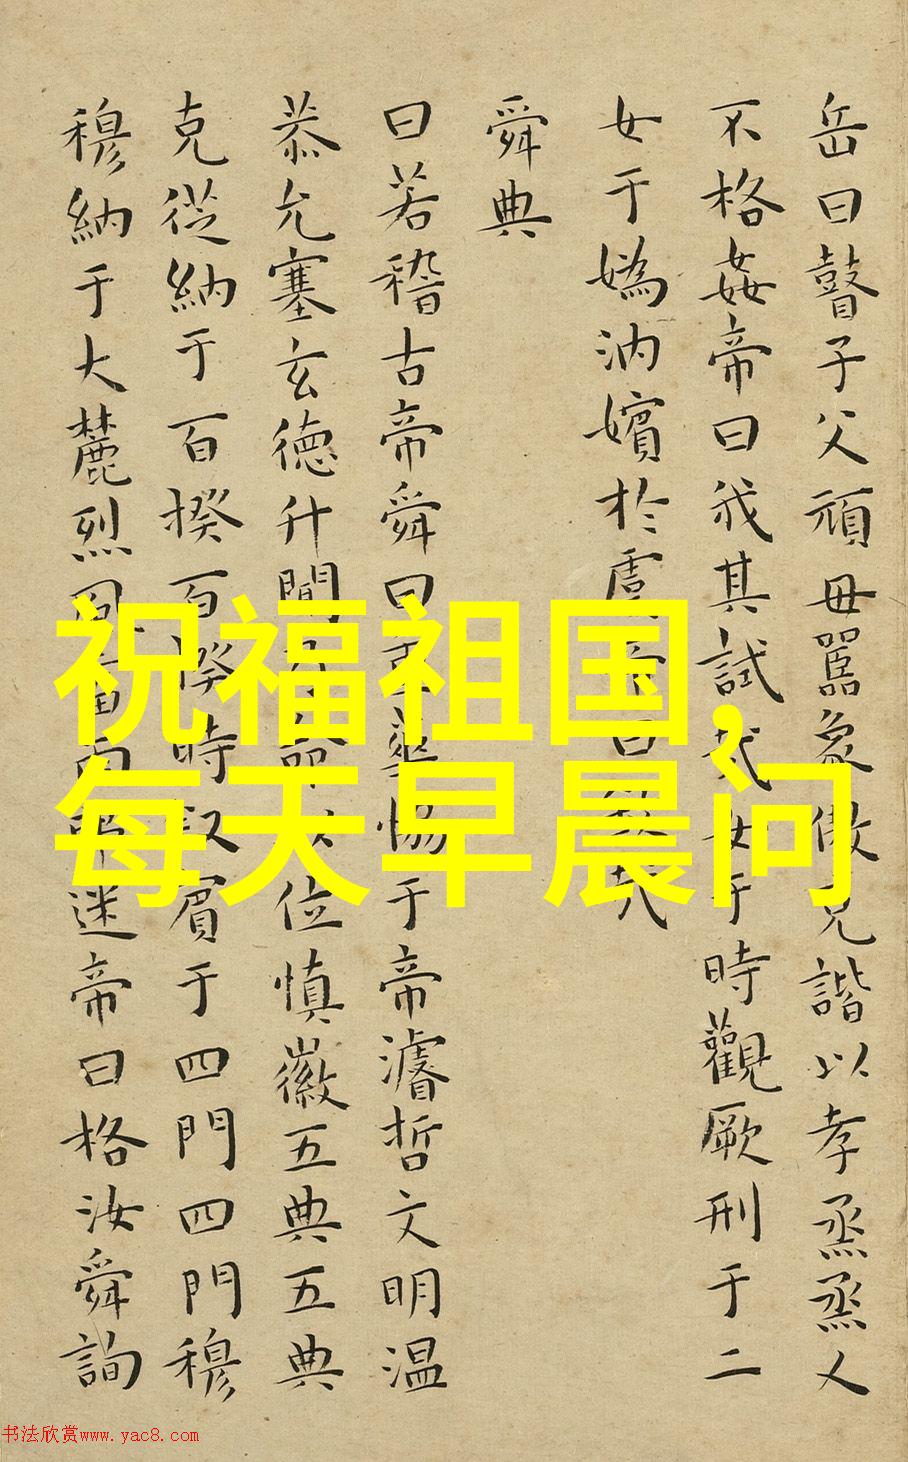 岳曰瞽子父頑母嚚象傲克諧以孝烝烝乂
不格姦帝曰我其試哉女于時觀厥刑于二
女于媯汭嬪於虞帝曰欽哉
舜典
曰若稽古帝舜曰重華協于帝濬哲文明温
恭允塞玄德升聞乃命以位慎徽五典五典
克從納于百揆百揆時叙賓于四門四門穆
穆納于大麓烈風雷雨弗迷帝曰格汝舜詢
祝福祖国,
每天早晨问
书法欣赏www.yac8.com